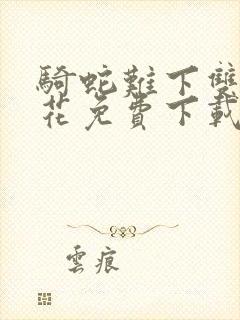 騎蛇難下雙
花免費下載
雲痕